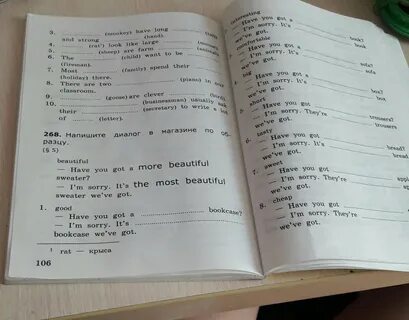 3. (monkey) have long
and strong (hand).
4. (rat¹) look like large
5. (sheep) are farm
6. The (child) want to be
(fireman).
7. Most (family) spend their
(holiday) there.
8. There are two (piano) in our
classroom.
9. (goose) are clever (bird).
10. (businessman) usually ask
their (secretary) to write a lot
of (letter).
268. Напишите диалог в магазине по об-
разцу.
(§ 5)
beautiful
— Have you got a more beautiful
sweater?
— I'm sorry. It's the most beautiful
sweater we've got.
1. good
— Have you got a bookcase?
— I'm sorry. It's
bookcase we've got.
¹ rat — крыса
106
interesting
— Have you got a book?
— I'm sorry. It's book
we've got.
comfortable
— Have you got a sofa?
— I'm sorry. It's sofa
we've got.
4. big
— Have you got a box?
— I'm sorry. It's box
we've got.
5. short
— Have you got trousers?
— I'm sorry. They're trousers
we've got.
6. tasty
— Have you got bread?
— I'm sorry. It's bread
we've got.
7. sweet
— Have you got
— I'm sorry. They're
we've got.
8. cheap
— Have you got
— I'm sorry. They're
we've got.